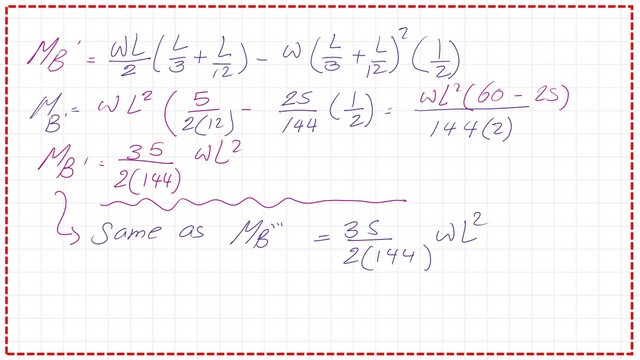 M_B' = wL/2 (L/3 + L/12) - w (L/3 + L/12)^2 (1/2)
M_B' = wL^2 (5/2(12) - 25/144 (1/2) = wL^2(60 - 25)/144(2)
M_B' = 35/2(144) wL^2
Same as M_B''' = 35/2(144) wL^2